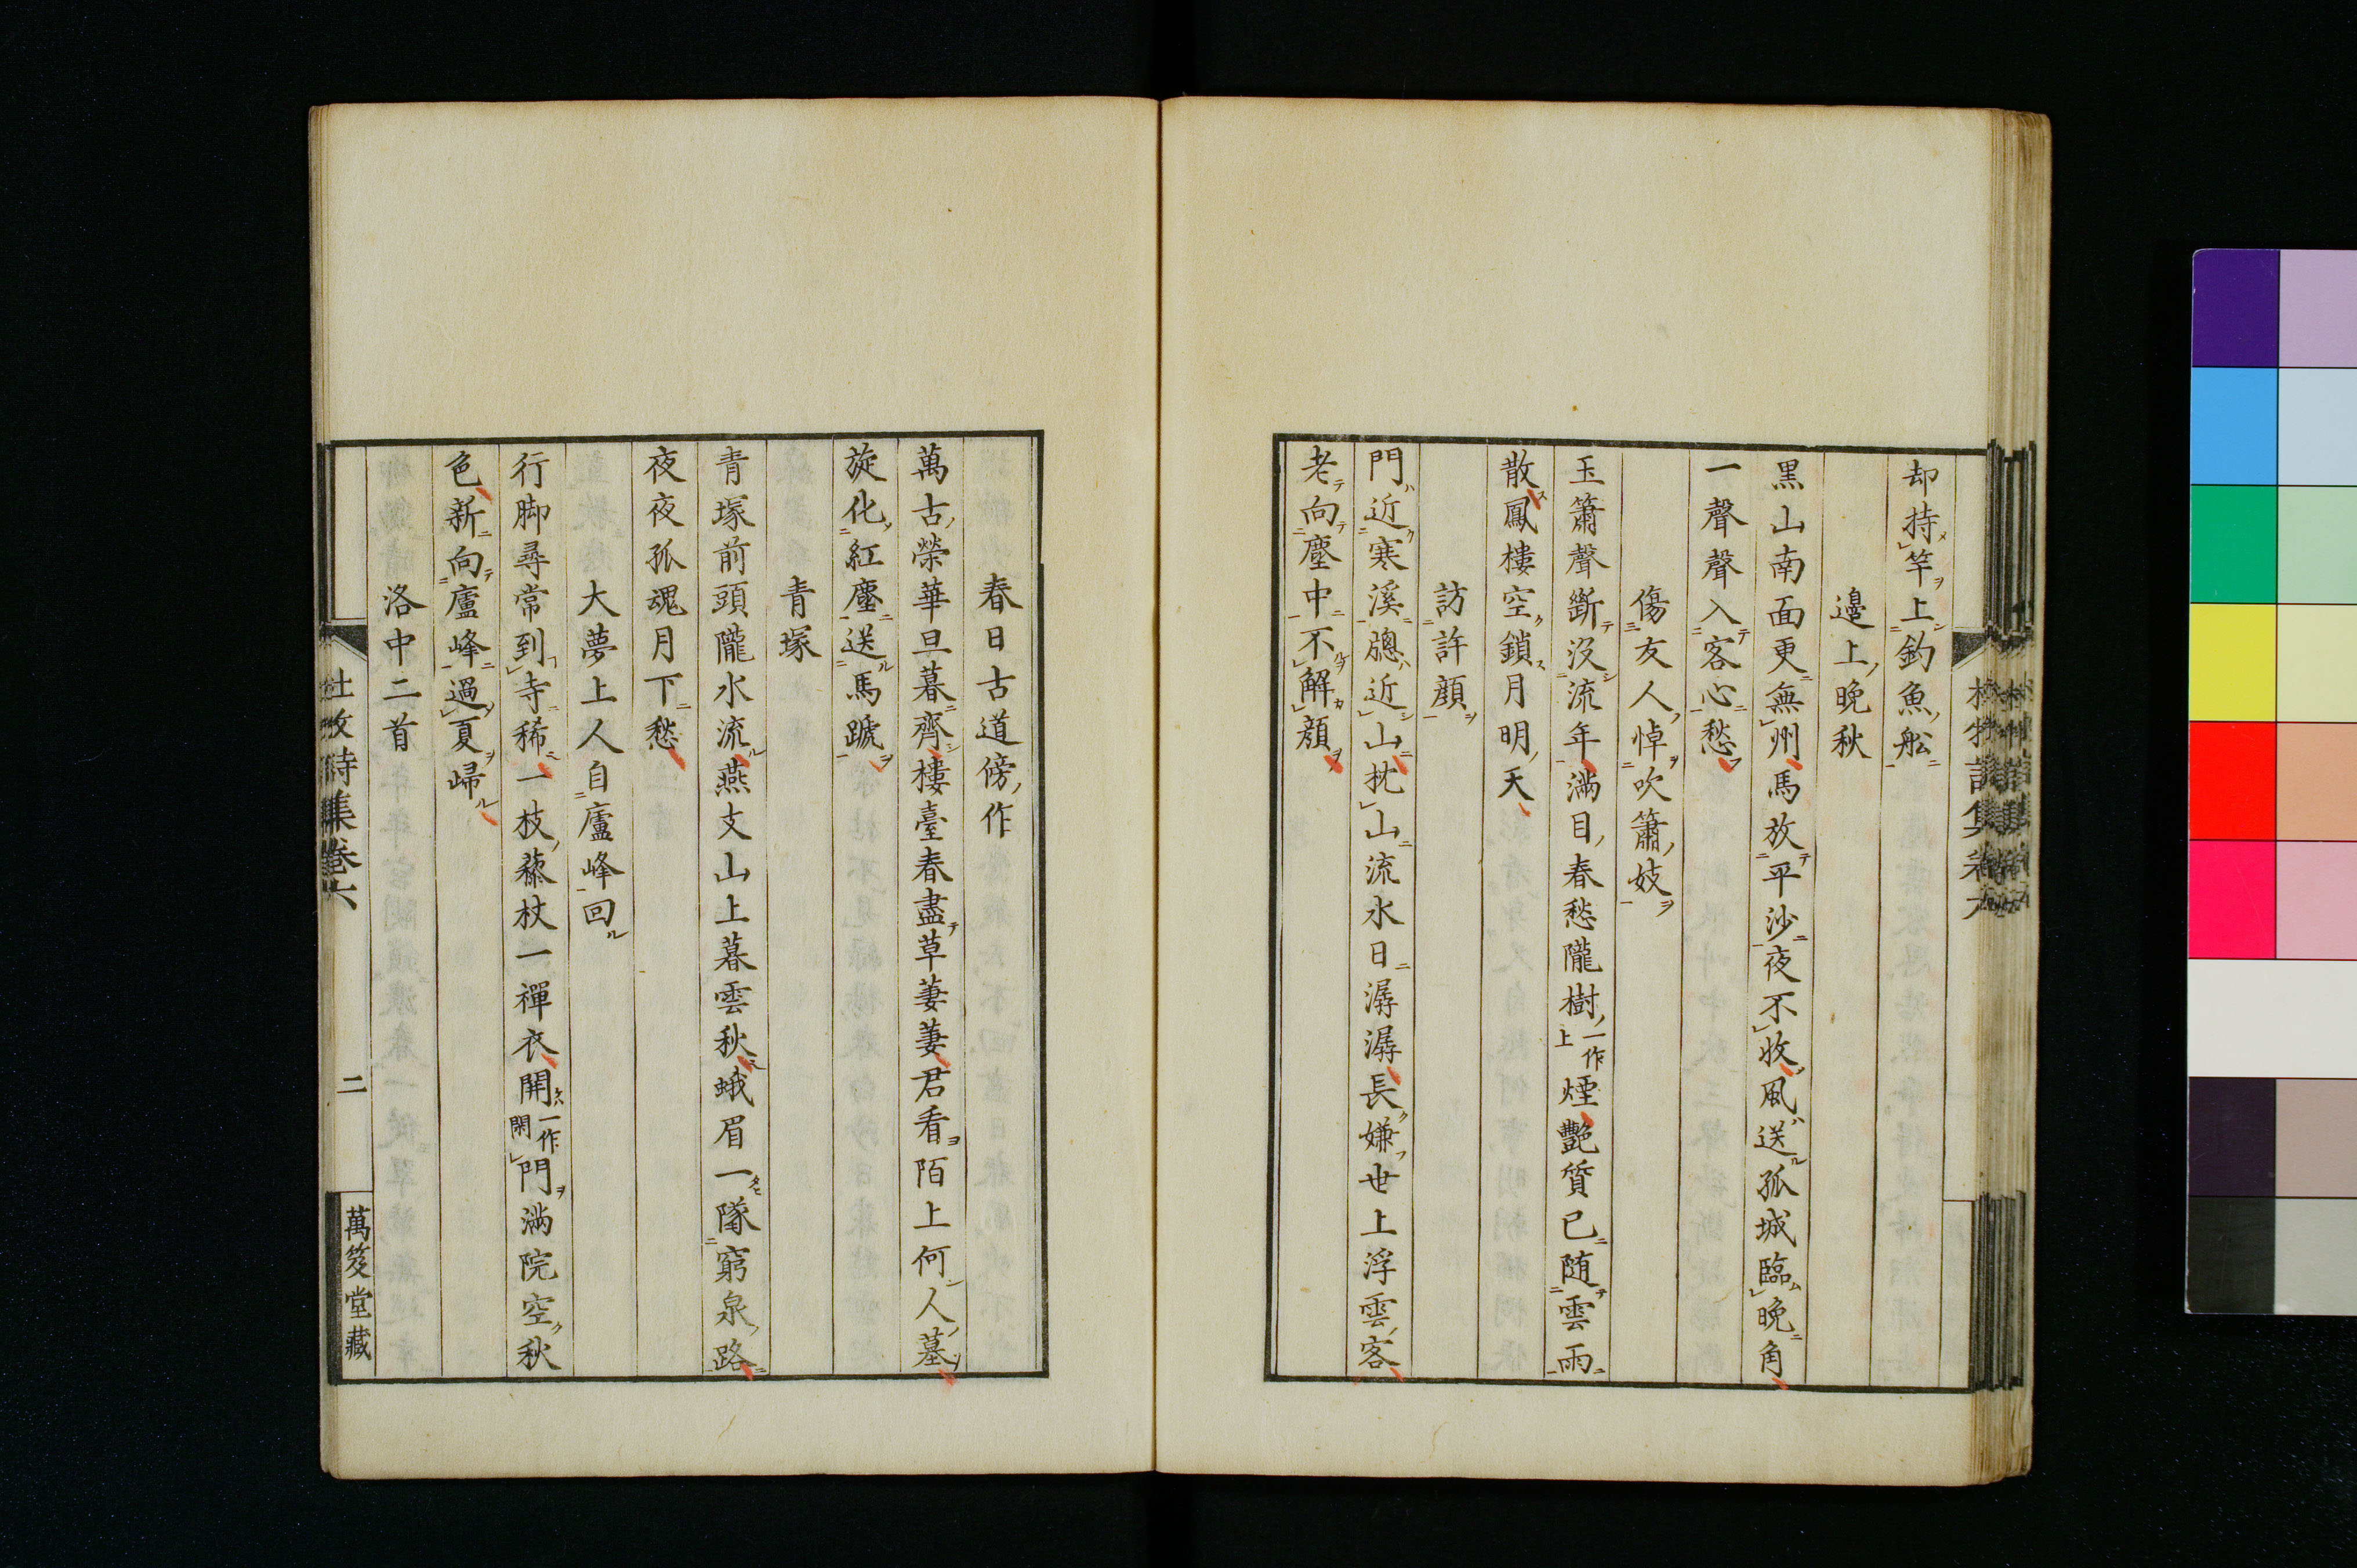 却持竿上釣魚船
邊上晚秋
黒山南面更無州馬放平沙夜不收風送孤城臨晚角
一聲聲入客心愁
傷友人悼吹簫妓
玉簫聲斷没流年滿目春愁隴樹一作上煙艷質已随雲雨
散鳳樓空鎖月明天
訪許顔
門近寒溪牕近山枕山流水日潺潺長嫌世上浮雲客
老向塵中不解顔
春日古道傍作
萬古榮華旦暮齊樓臺春盡草萋萋君看陌上何人墓
旋化紅塵送馬蹏
青塚
青塚前頭隴水流燕支山上暮雲秋蛾眉一隊窮泉路
夜夜孤魂月下愁
大夢上人自廬峰回
行脚尋常到寺稀一枝藜杖一禪衣開一作閑門滿院空秋
色新向廬峰過夏歸
洛中二首
杜牧詩集卷六
二
萬笈堂藏